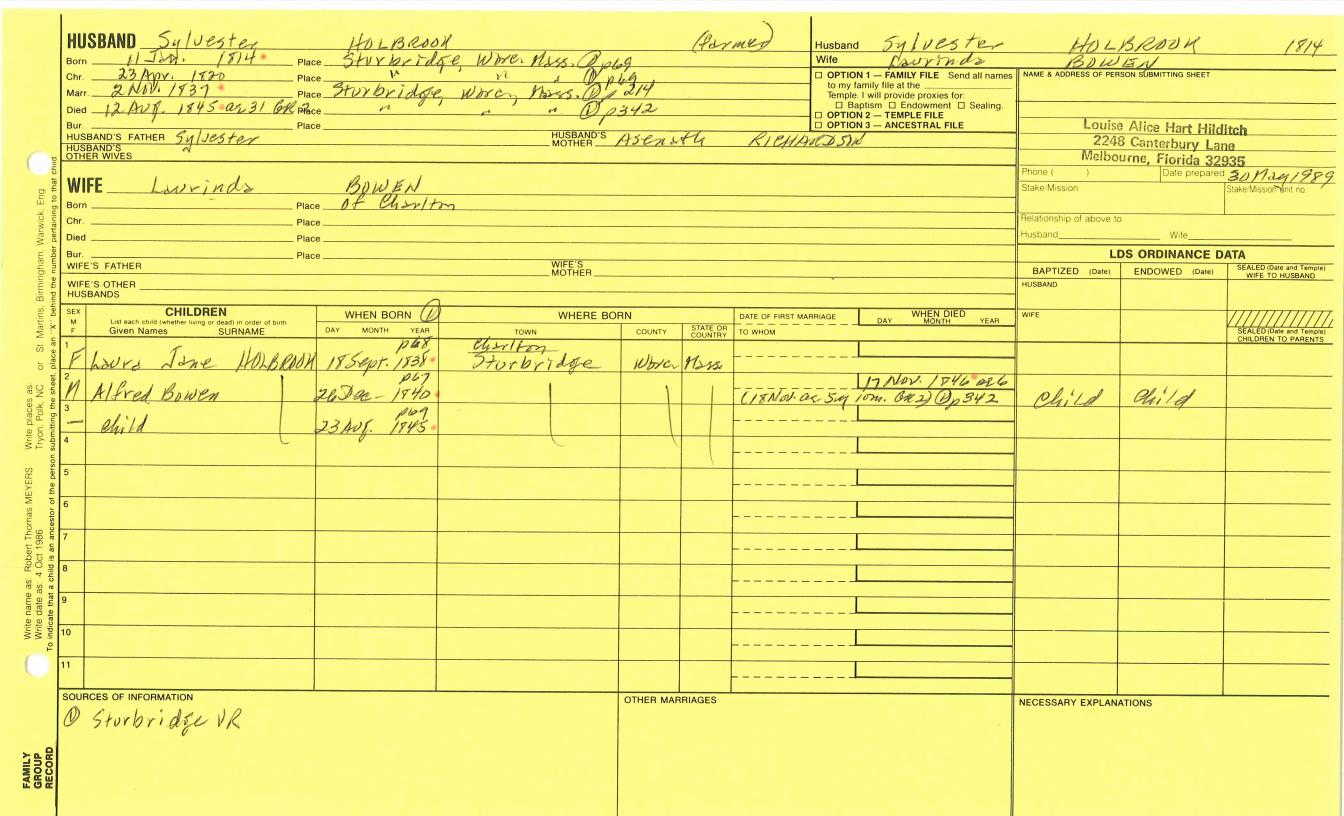 HUSBAND Sylvester HOLBROOK (farmed)
Born 11 Jan. 1814 Place Sturbridge, Worc. Mass. ① p69
Chr. 23 Apr. 1820 Place " " " ① p69
Marr. 2 Nov. 1837 Place Sturbridge, Worc, Mass. ① p 214
Died 12 Aug. 1845 ae 31 GR2 Place " " ① p342
Bur Place
HUSBAND'S FATHER Sylvester HUSBAND'S MOTHER Asenath RICHARDSON
HUSBAND'S OTHER WIVES
WIFE Laurinda BOWEN
Born Place of Charlton
Chr. Place
Died Place
Bur. Place
WIFE'S FATHER WIFE'S MOTHER
WIFE'S OTHER HUSBANDS
Husband Sylvester HOLBROOK 1814
Wife Laurinda BOWEN
☐ OPTION 1 — FAMILY FILE Send all names
to my family file at the
Temple. I will provide proxies for:
☐ Baptism ☐ Endowment ☐ Sealing.
☐ OPTION 2 — TEMPLE FILE
☐ OPTION 3 — ANCESTRAL FILE
NAME & ADDRESS OF PERSON SUBMITTING SHEET
Louise Alice Hart Hilditch
2248 Canterbury Lane
Melbourne, Florida 32935
Phone ( ) Date prepared 30 May 1989
Stake/Mission Stake/Mission unit no.
Relationship of above to
Husband Wife
LDS ORDINANCE DATA
BAPTIZED (Date) ENDOWED (Date) SEALED (Date and Temple) WIFE TO HUSBAND
HUSBAND
WIFE
SEALED (Date and Temple) CHILDREN TO PARENTS
SEX M F
CHILDREN
List each child (whether living or dead) in order of birth
Given Names SURNAME
WHEN BORN ①
DAY MONTH YEAR
WHERE BORN
TOWN COUNTY STATE OR COUNTRY
DATE OF FIRST MARRIAGE
TO WHOM
WHEN DIED
DAY MONTH YEAR
1 p68 Charlton
F Laura Jane HOLBROOK 18 Sept. 1838 Sturbridge Worc. Mass
2 p67 17 Nov. 1846 ae 6
M Alfred Bowen 26 Dec- 1840 (18 Nov. ae 5y 10m. GR2) ① p342 Child Child
3 p69
— child 23 Aug. 1845
4
5
6
7
8
9
10
11
SOURCES OF INFORMATION
① Sturbridge VR
OTHER MARRIAGES
NECESSARY EXPLANATIONS
Write name as: Robert Thomas MEYERS Write places as: Tryon, Polk, NC or St Martins, Birmingham, Warwick, Eng.
Write date as: 4 Oct 1986
To indicate that a child is an ancestor of the person submitting the sheet, place an "X" behind the number pertaining to that child.
FAMILY GROUP RECORD